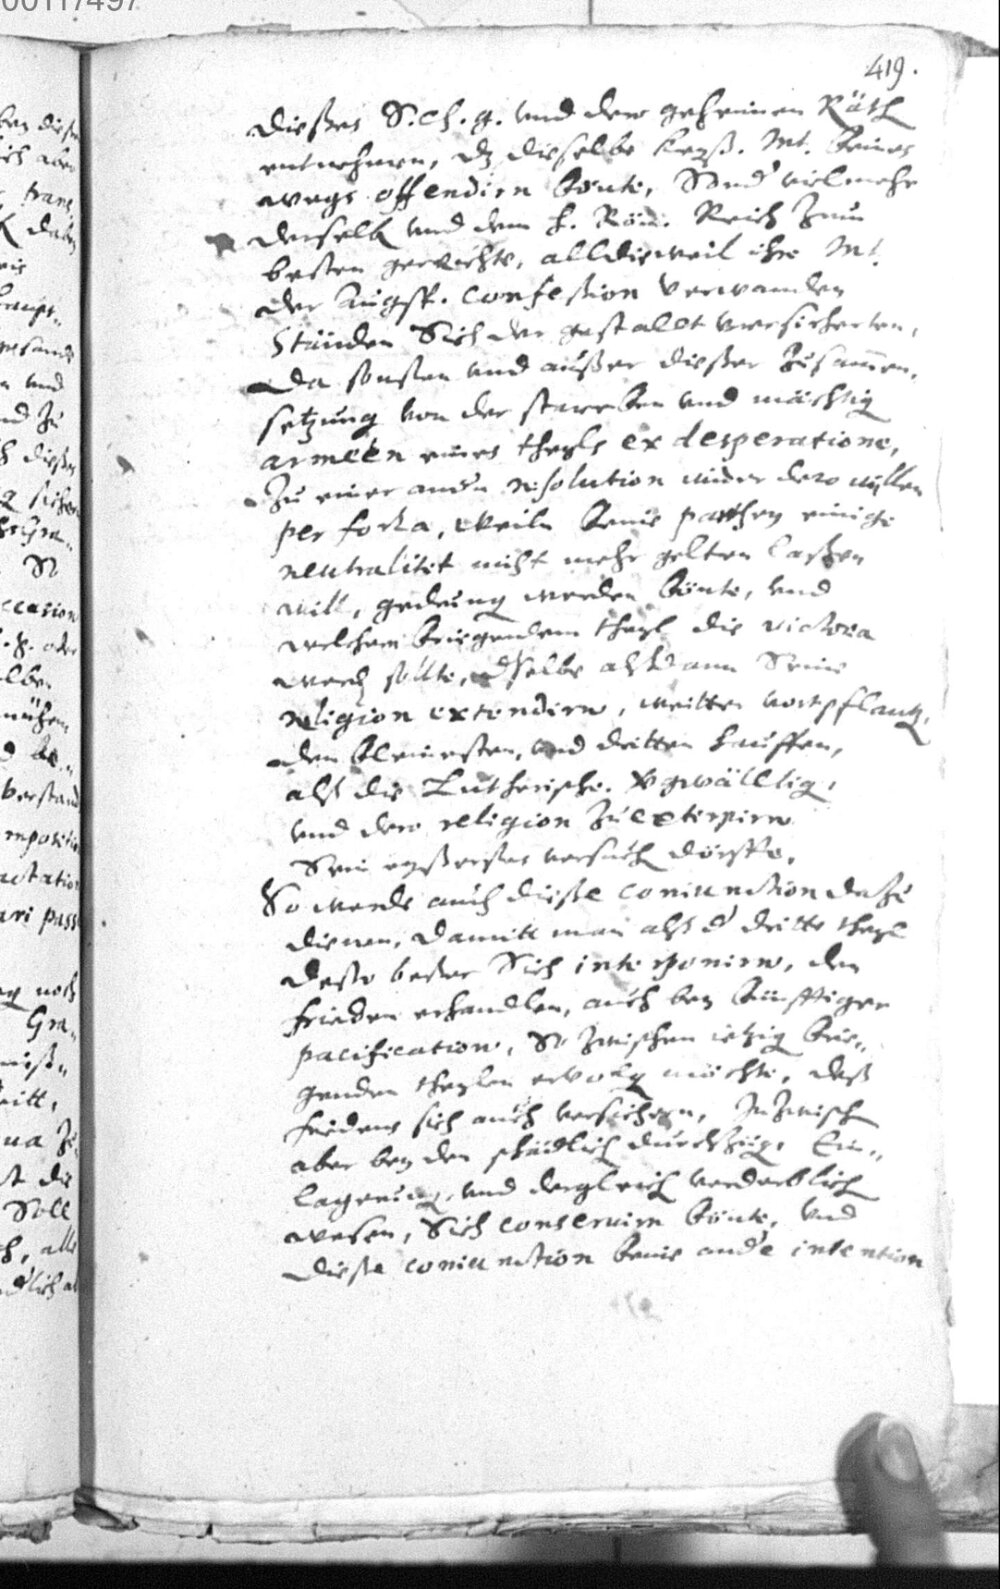 00117497
419.
dießes S. Ch. g. vnd dero geheimen Räth
entnehmen, dz dieselbe Kayß. Mt. keines
wegs offendirn könte, Sond' vielmehr
derselb vnd dem h. Röm. Reich zum
besten gereichte, alldieweil ihr Mt.
der Augsp. Confession verwanden
Stünden Sich der gestallt versicherten,
Da sonsten vnd außer dießer zusammen,
setzung von der starcken vnd mächtig
armeen eines theyls ex desperatione,
zu einer andn resolution wider dero willen
per forza, weiln keine parthey einige
neutralitet nicht mehr gelten laßen
will, gedrung werden könte, vnd
welchem kriegendem theyl die victoria
werd sollte, dselbe alßdann Seine
religion extendirn, weitter vortpflantz,
den kleinesten, vnd dritten hauffen,
alß die Lutherische vgwältig,
vnd dero religion zu extirpirn
Sein eyßerstes versuch dörffte,
So werde auch dieße coniunction dazu
dienen, damitt man alß d' dritte theyl
desto beßer Sich interponirn, den
frieden erhandlen, auch bey künfftiger
pacification, So zwischen ietzig krie„
genden theylen ervolg möchte, deß
friedens sich auch versichern, Inzwisch
aber bey den schädlich durchzüg, Ein„
lagerung, vnd dergleich verderblich
wesen, Sich conservirn könte, vnd
dieße coniunction keine and'e intention